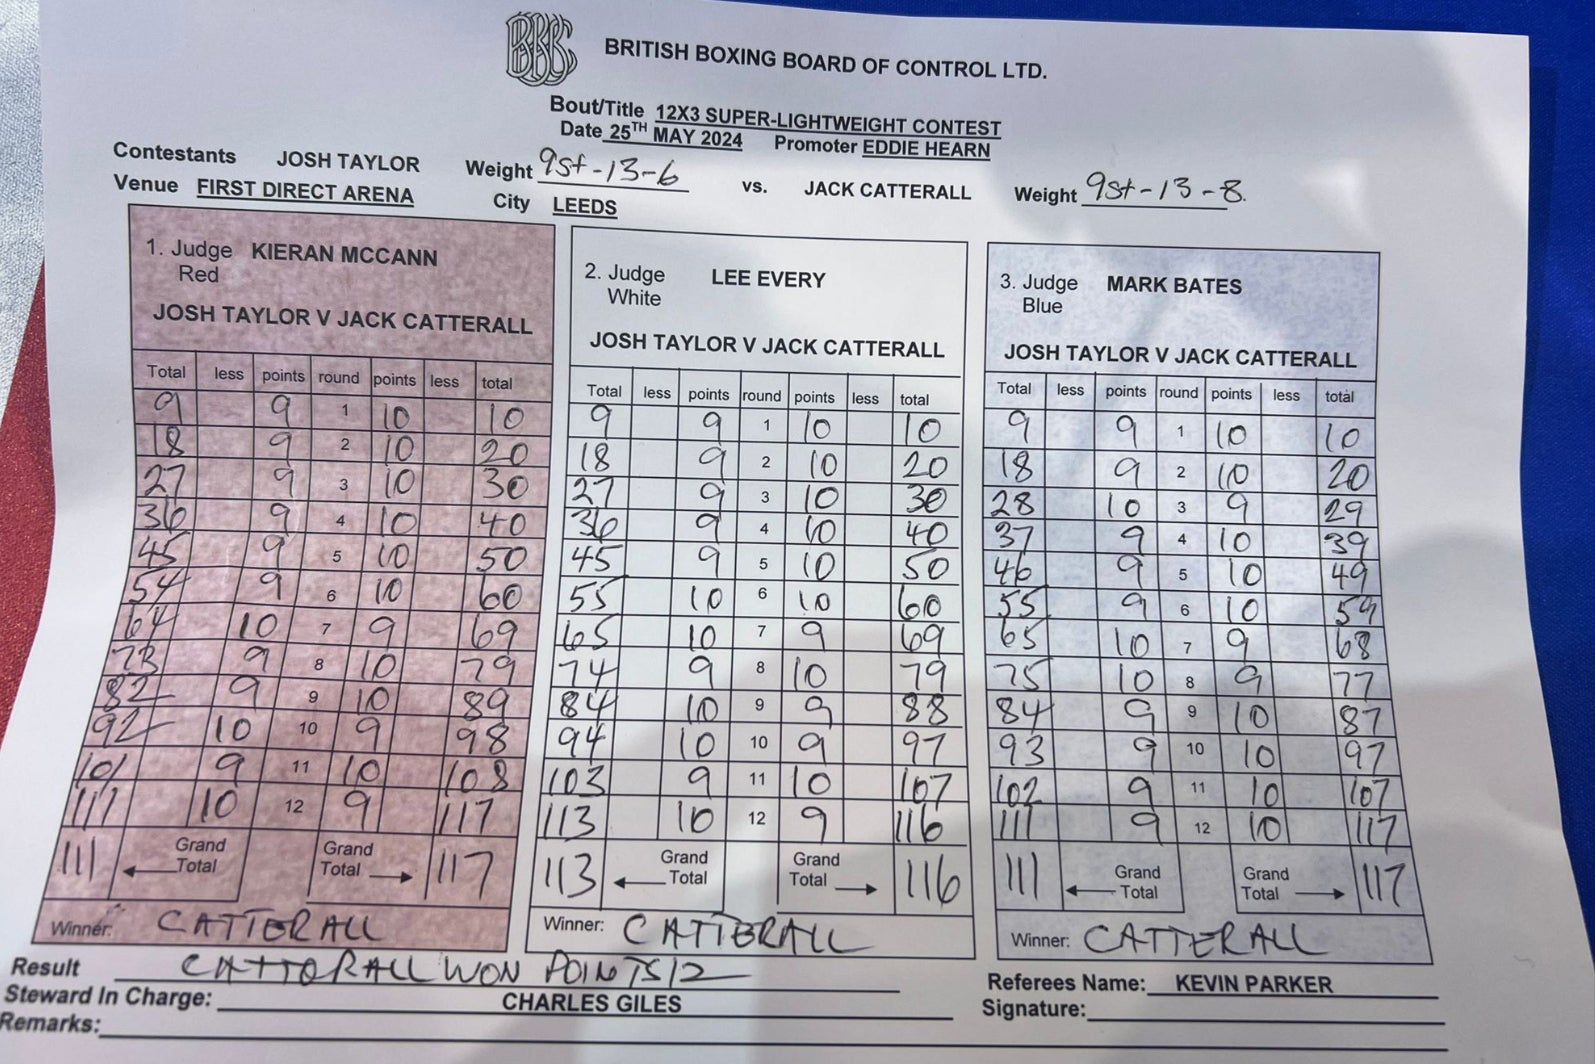 BBBC
BRITISH BOXING BOARD OF CONTROL LTD.
Bout/Title 12X3 SUPER-LIGHTWEIGHT CONTEST
Date 25TH MAY 2024 Promoter EDDIE HEARN
Contestants JOSH TAYLOR Weight 9st-13-6 vs. JACK CATTERALL Weight 9st-13-8.
Venue FIRST DIRECT ARENA City LEEDS
1. Judge KIERAN MCCANN
Red
JOSH TAYLOR V JACK CATTERALL
Total less points round points less total
9 9 1 10 10
18 9 2 10 20
27 9 3 10 30
36 9 4 10 40
45 9 5 10 50
54 9 6 10 60
64 10 7 9 69
73 9 8 10 79
82 9 9 10 89
92 10 10 9 98
101 9 11 10 108
111 10 12 9 117
111 Grand Total Grand Total 117
Winner: CATTERALL
2. Judge LEE EVERY
White
JOSH TAYLOR V JACK CATTERALL
Total less points round points less total
9 9 1 10 10
18 9 2 10 20
27 9 3 10 30
36 9 4 10 40
45 9 5 10 50
55 10 6 10 60
65 10 7 9 69
74 9 8 10 79
84 10 9 9 88
94 10 10 9 97
103 9 11 10 107
113 10 12 9 116
113 Grand Total Grand Total 116
Winner: CATTERALL
3. Judge MARK BATES
Blue
JOSH TAYLOR V JACK CATTERALL
Total less points round points less total
9 9 1 10 10
18 9 2 10 20
28 10 3 9 29
37 9 4 10 39
46 9 5 10 49
55 9 6 10 59
65 10 7 9 68
75 10 8 9 77
84 9 9 10 87
93 9 10 10 97
102 9 11 10 107
111 9 12 10 117
111 Grand Total Grand Total 117
Winner: CATTERALL
Result CATTORALL WON POINTS 12
Steward In Charge: CHARLES GILES
Remarks:
Referees Name: KEVIN PARKER
Signature: